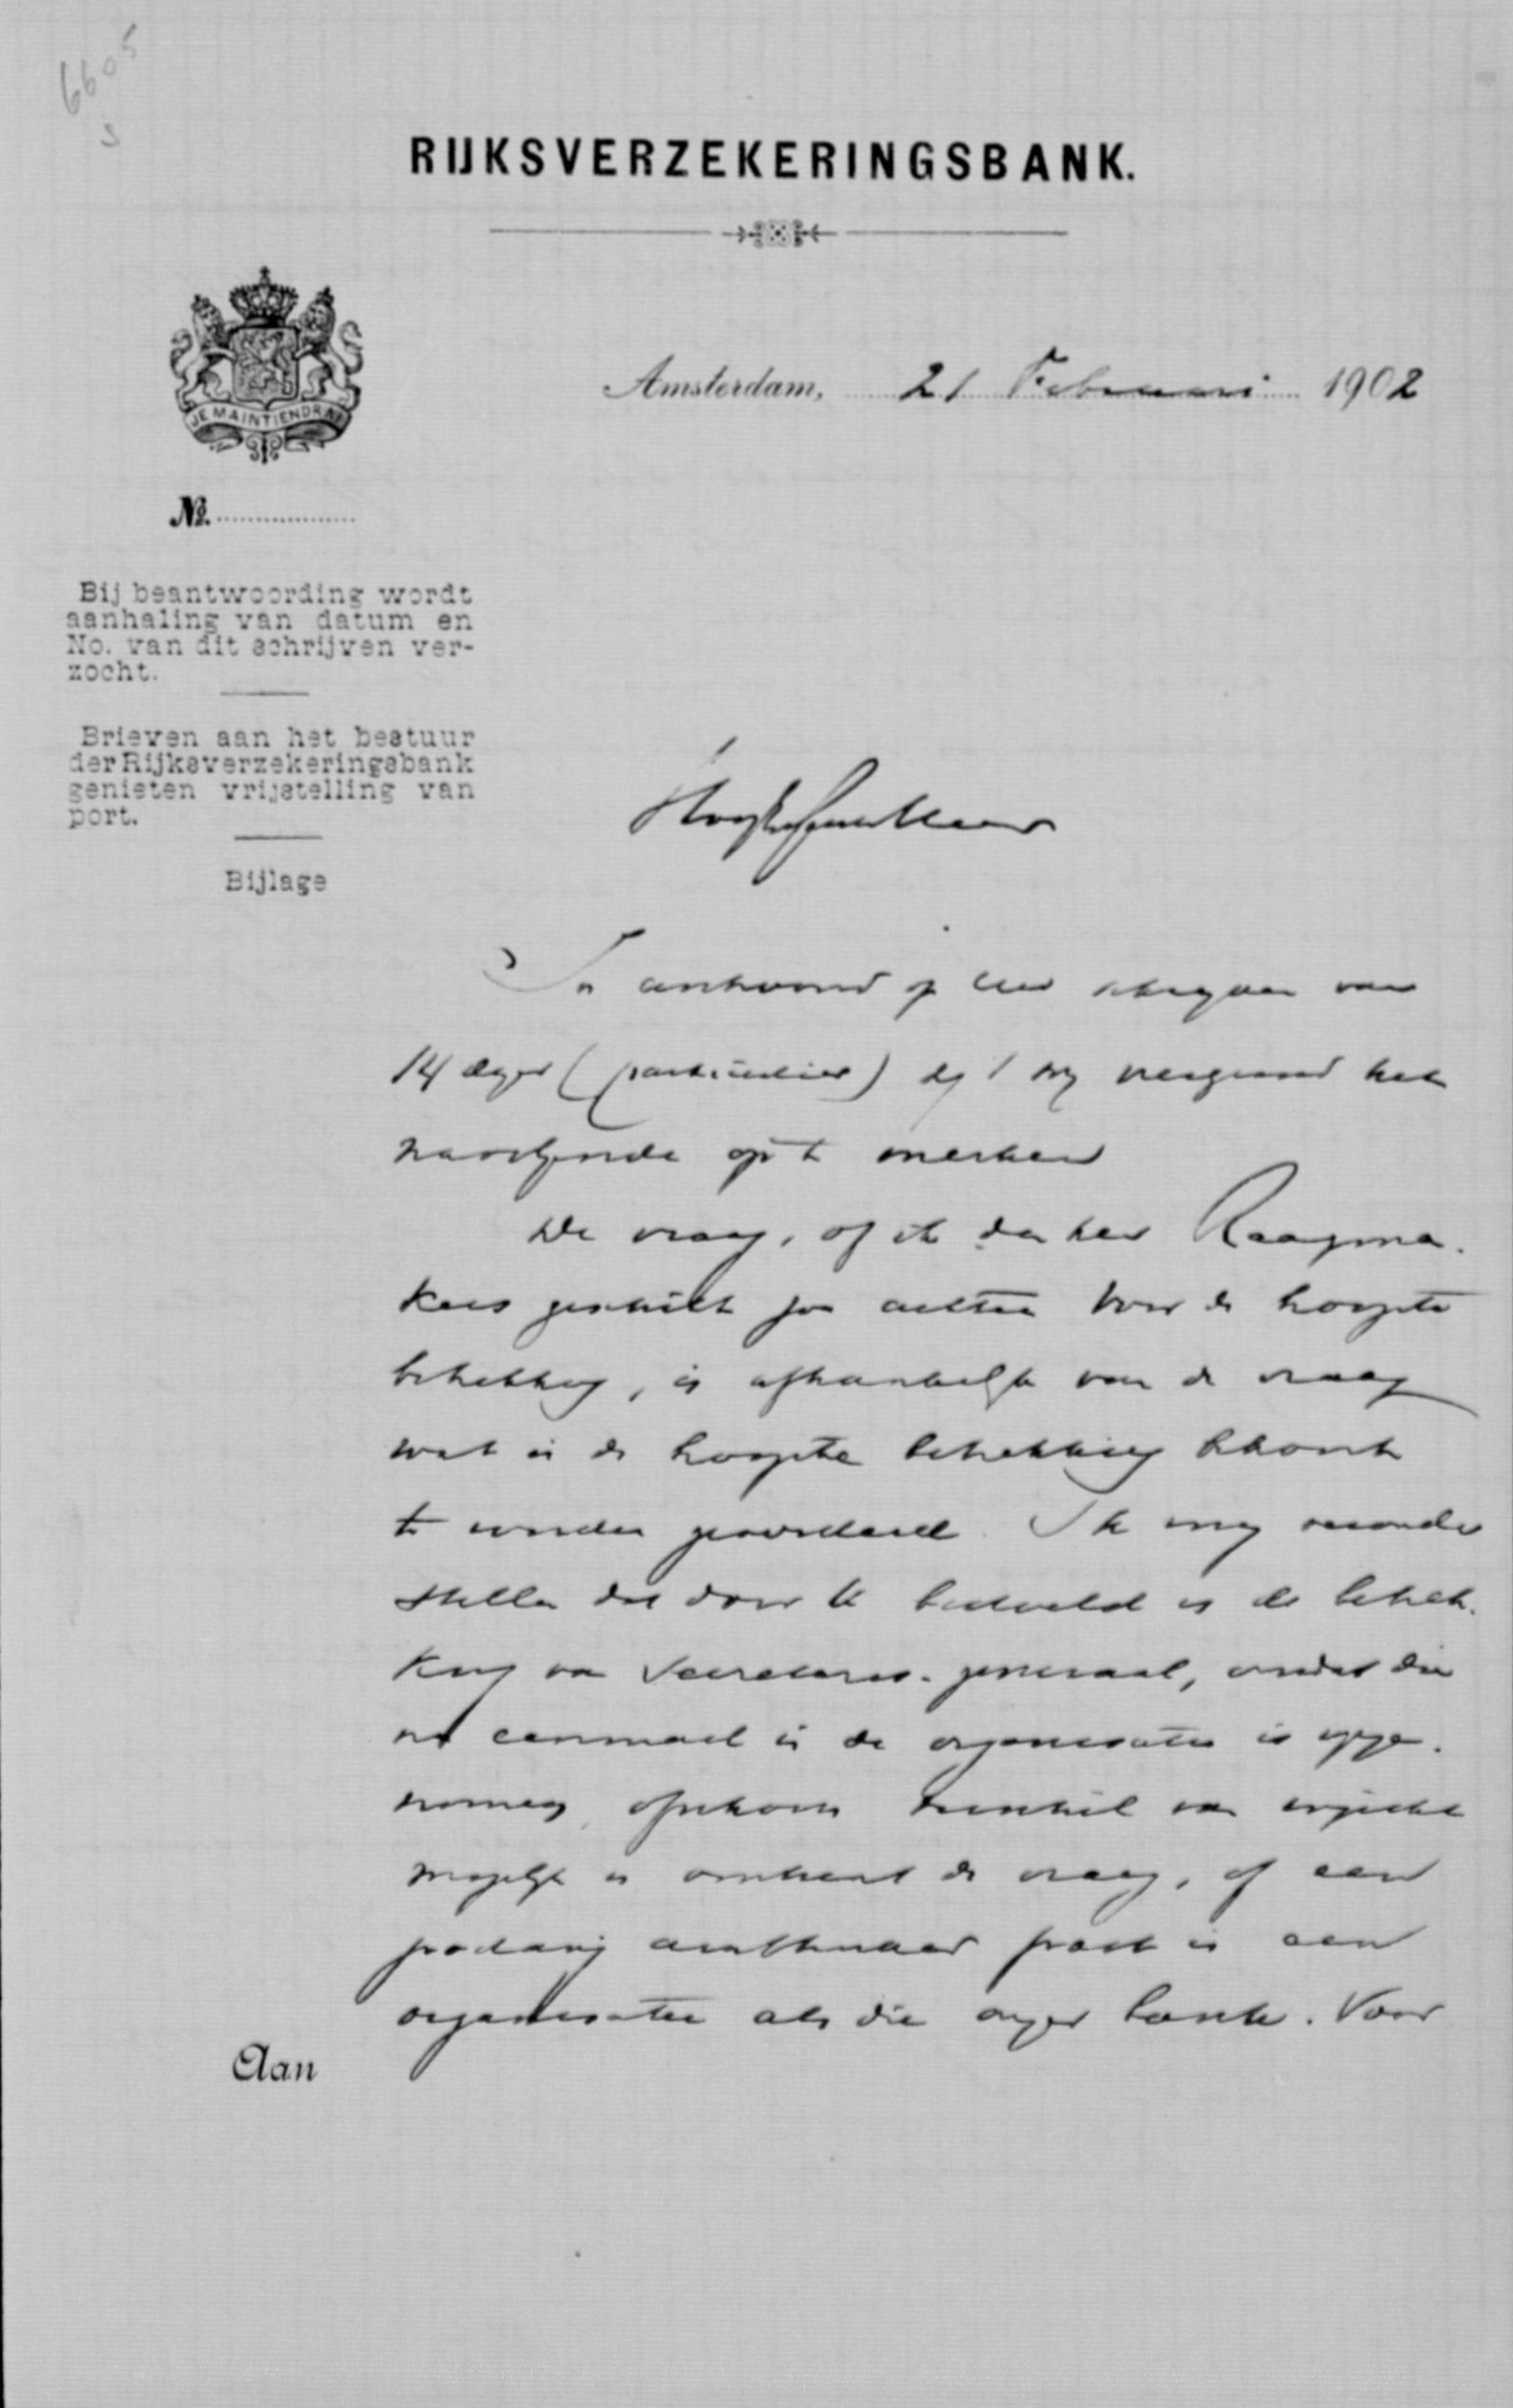 6605
S
RIJKSVERZEKERINGSBANK.
JE MAINTIENDRAI
Amsterdam, 21 Februari 1902
No.
Bij beantwoording wordt
aanhaling van datum en
No. van dit schrijven ver-
zocht.
Brieven aan het bestuur
der Rijksverzekeringsbank
genieten vrijstelling van
port.
Bijlage
In antwoord op Uw schrijven van
14 dezer (particulier) zij 't mij vergund het
navolgende op te merken
De vraag, of ik den heer Raaijma-
kers geschikt zou achten voor de hoogste
betrekking, is afhankelijk van de vraag
wat is de hoogste betrekking behoort
te worden geoordeeld. Ik mag veronder
stellen dat door U bedoeld is de betrek-
king van Secretaris-generaal, omdat die
nu eenmaal in de organisatie is opge-
nomen, ofschoon verschil van
mogelijk is omtrent de vraag, of een
zoodanig ambtenaar past in een
organisatie als die onzer bank. Voor
Aan